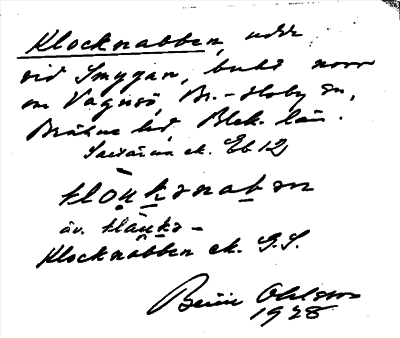 Klocknabben, udde
vid Smygan, bukt norr
om Vagnsö, Br.-Hoby sn,
Bräkne hd, Blek. län.
ek. Eb 12
klo̤ṳk̲ənab̲ən
äv. kläṳk̲ə-
Klocknabben ek. G.S.
Ohlsson
1928